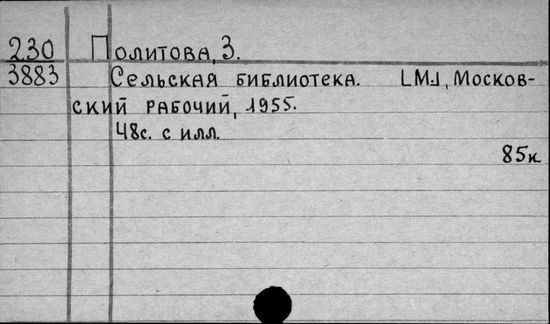 230 Политова, З.
3883 Сельская библиотека. [М], Москов-
ский рабочий, 1955.
48с. с илл.
85к